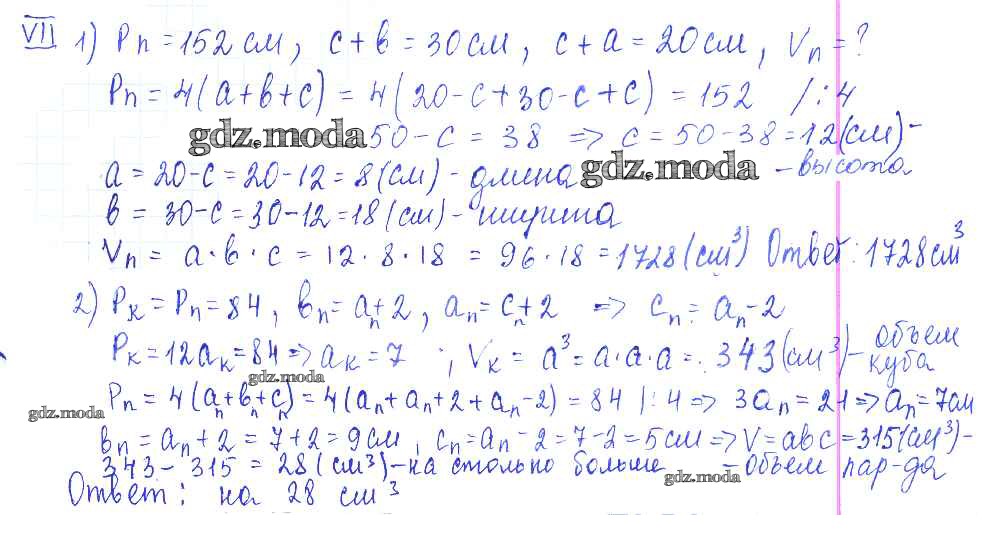 VII 1) Pп = 152 см, c + в = 30 см, c + a = 20 см, Vп = ?
Pп = 4(a + в + c) = 4(20 - c + 30 - c + c) = 152 /:4
gdz.moda 50 - c = 38 => c = 50 - 38 = 12 (см) -
a = 20 - c = 20 - 12 = 8 (см) - длина gdz.moda - высота
в = 30 - c = 30 - 12 = 18 (см) - ширина
Vп = a · в · c = 12 · 8 · 18 = 96 · 18 = 1728 (см³) Ответ: 1728 см³
2) Pк = Pп = 84, вп = aп + 2, aп = cп + 2 => cп = aп - 2
Pк = 12aк = 84 => aк = 7 ; Vк = a³ = a · a · a = 343 (см³) - объем куба
gdz.moda
Pп = 4(aп + вп + cп) = 4(aп + aп + 2 + aп - 2) = 84 /:4 => 3aп = 21 => aп = 7см
gdz.moda
вп = aп + 2 = 7 + 2 = 9 см, cп = aп - 2 = 7 - 2 = 5 см => V = aвc = 315 (см³) -
343 - 315 = 28 (см³) - на столько больше - объем пар-да
gdz.moda
Ответ: на 28 см³